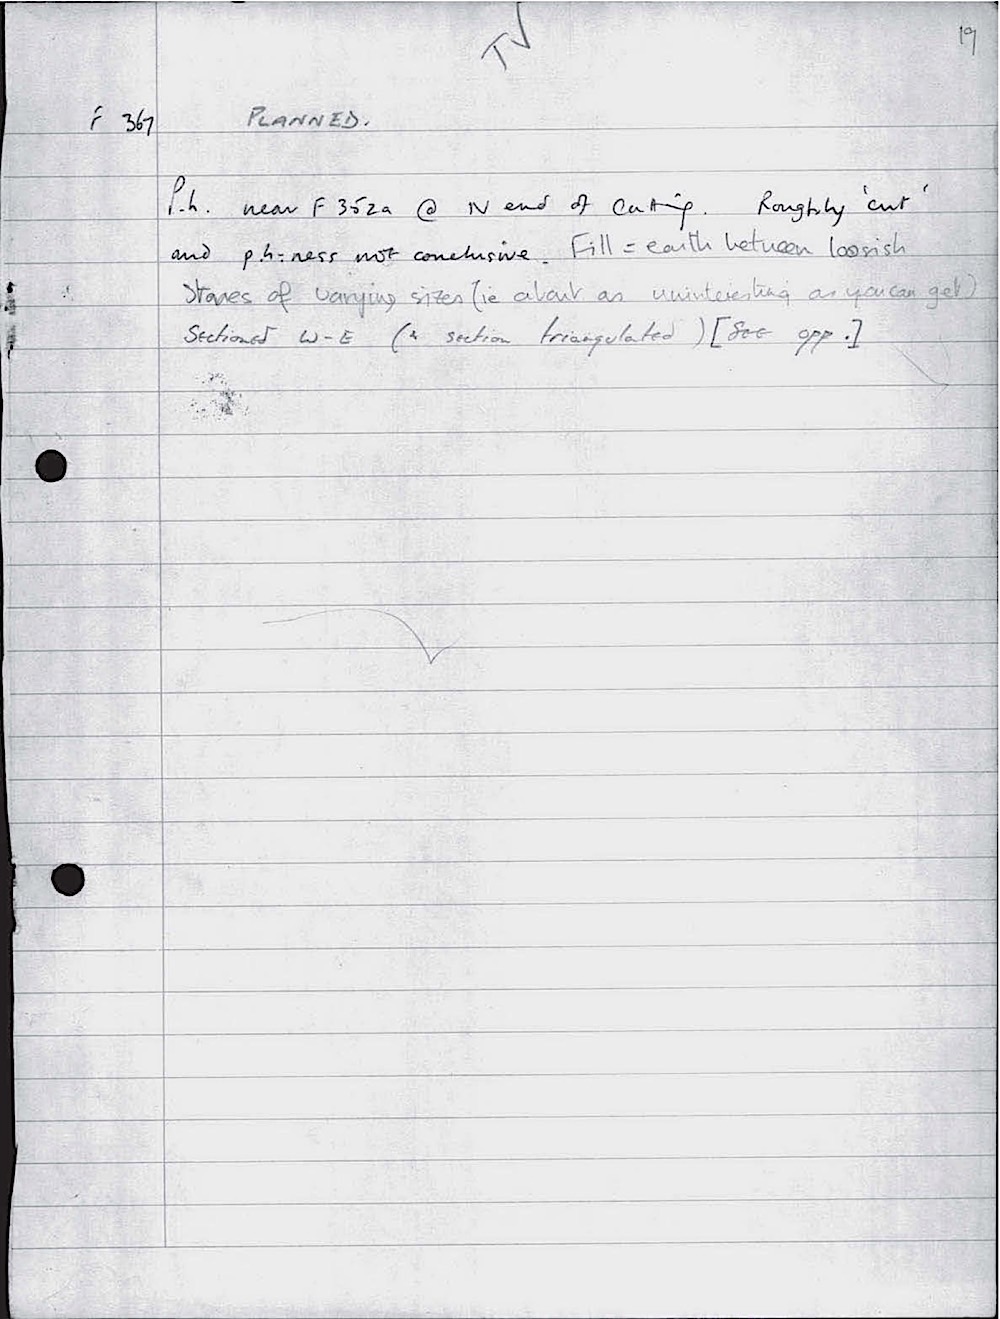 TV
19
F 367 PLANNED.
P.h. near F 352a @ N end of Cutting. Roughly 'cut'
and p.h-ness not conclusive. Fill = earth between loosish
stones of varying sizes (ie about as uninteresting as you can get)
Sectioned W-E (& section triangulated) [See opp.]